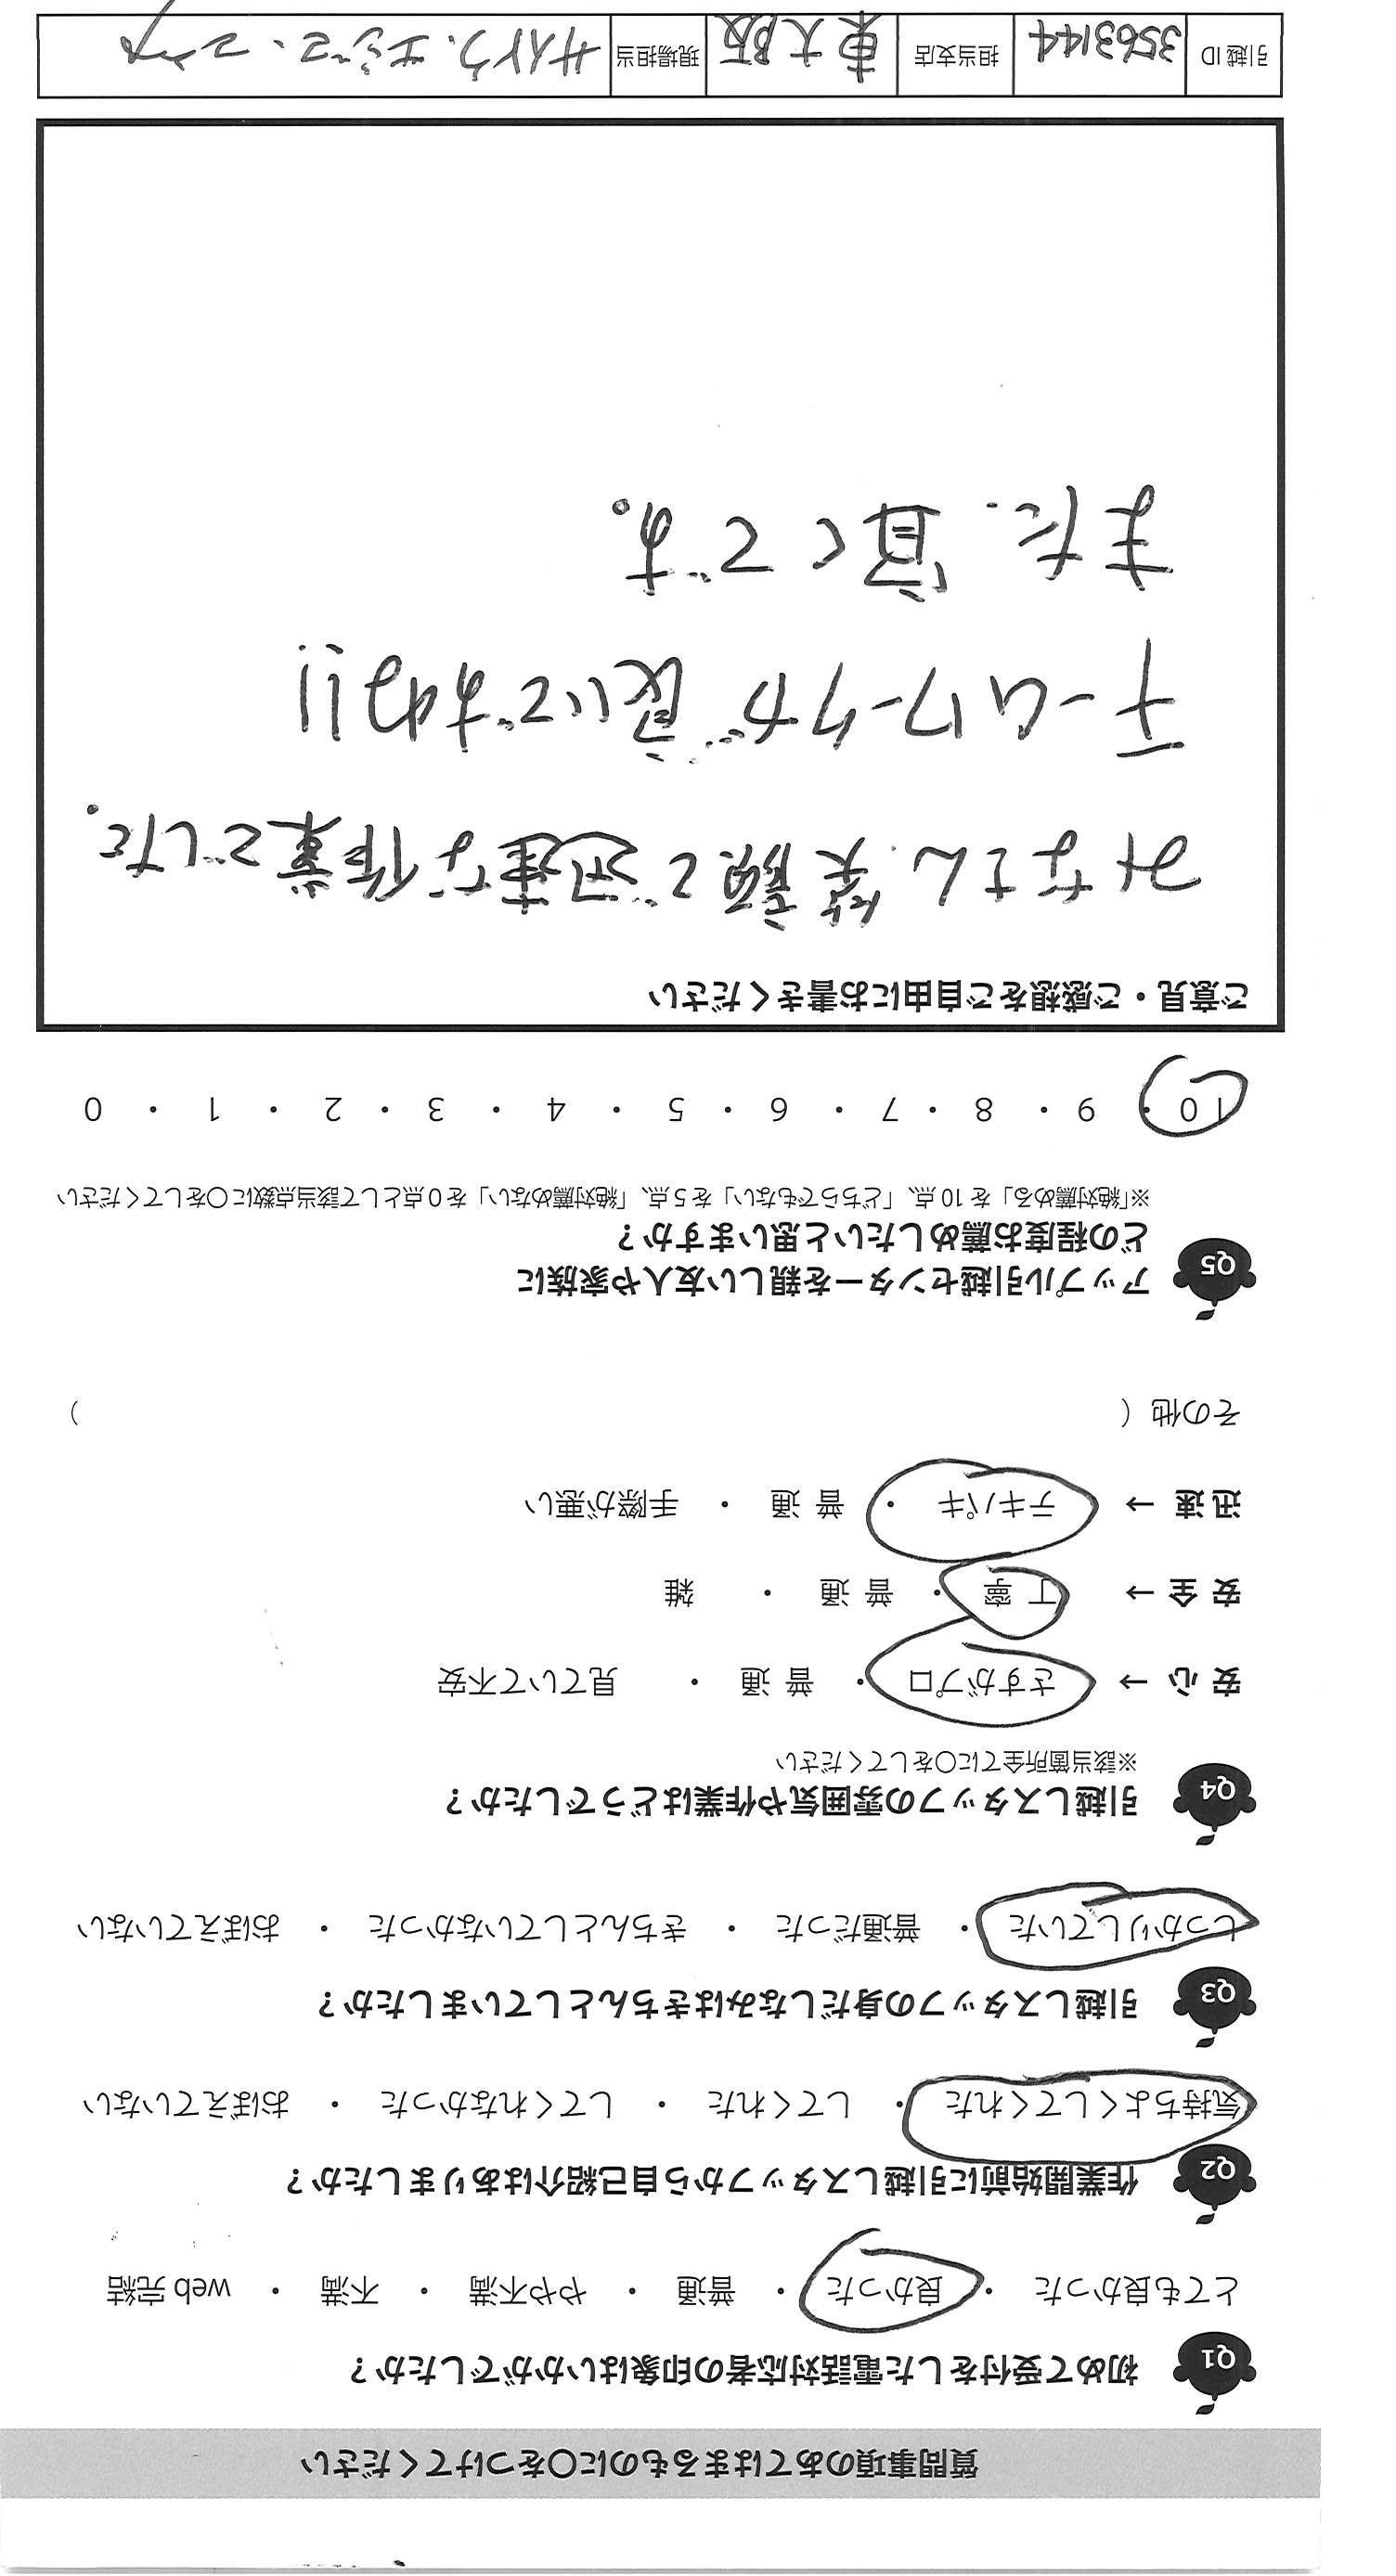 質問事項のあてはまるものに〇をつけてください
Q1 初めて受付をした電話対応者の印象はいかがでしたか？
とても良かった ・ 良かった ・ 普通 ・ やや不満 ・ 不満 ・ web 完結
Q2 作業開始前に引越しスタッフから自己紹介はありましたか？
気持ちよくしてくれた ・ してくれた ・ してくれなかった ・ おぼえていない
Q3 引越しスタッフの身だしなみはきちんとしていましたか？
しっかりしていた ・ 普通だった ・ きちんとしていなかった ・ おぼえていない
Q4 引越しスタッフの雰囲気や作業はどうでしたか？
※該当箇所全てに〇をしてください
安心 → さすがプロ ・ 普通 ・ 見ていて不安
安全 → 丁寧 ・ 普通 ・ 雑
迅速 → テキパキ ・ 普通 ・ 手際が悪い
その他（ ）
Q5 アップル引越センターを親しい友人や家族に
どの程度お薦めしたいと思いますか？
※「絶対薦める」を 10 点、「どちらでもない」を 5 点、「絶対薦めない」を 0 点として該当点数に〇をしてください
10 ・ 9 ・ 8 ・ 7 ・ 6 ・ 5 ・ 4 ・ 3 ・ 2 ・ 1 ・ 0
ご意見・ご感想をご自由にお書きください
みなさん、笑顔で迅速な作業でした.
チームワークが良いですね!!
また、宜くです。
引越 ID 3563144 担当支店 東大阪 現場担当 サイトウ、エジマ、